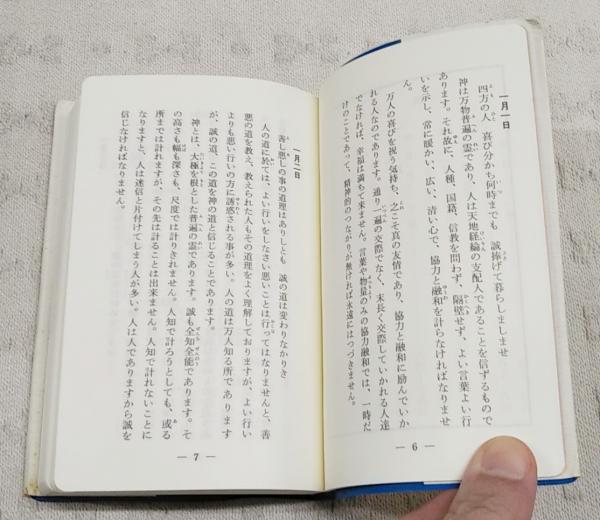 一月一日
四方の人　喜び分かち何時までも　誠捧げて暮らしましませ
神は万物普遍の霊であり、人は天地経綸の支配人であることを信ずるもので
あります。それ故に、人種、国籍、信教を問わず、隔壁せず、よい言葉よい行
いを示し、常に暖かい、広い、清い心で、協力と融和を計らなければなりませ
ん。
万人の喜びを祝う気持ち、之こそ真の友情であり、協力と融和に励んでいか
れる人なのであります。通り一遍の交際でなく、末長く交際していかれる人達
でなければ、幸福は満ちて来ません。言葉や物量のみの協力融和では、一時だ
けのことであって、精神的のつながりが無ければ永遠にはつづきません。
— 6 —
一月二日
善し悪しの事の道理はありしとも　誠の道は変わりなかりき
人の道に於ては、よい行いをしなさい悪いことは行ってはなりませんと、善
悪の道を教え、教えられた人もその道理をよく理解しておりますが、よい行い
よりも悪い行いの方に誘惑される事が多い。人の道は万人知る所であります
が、誠の道、この道を神の道と信じることであります。
神とは、大極を根とした普遍の霊であります。誠も全知全能であります。そ
の高さも幅も深さも、尺度では計りきれません。人知で計ろうとしても、或る
所までは計れますが、その先は計ることは出来ません。人知で計れないことに
なりますと、人は迷信と片付けてしまう人が多い。人は人でありますから誠を
信じなければなりません。
— 7 —